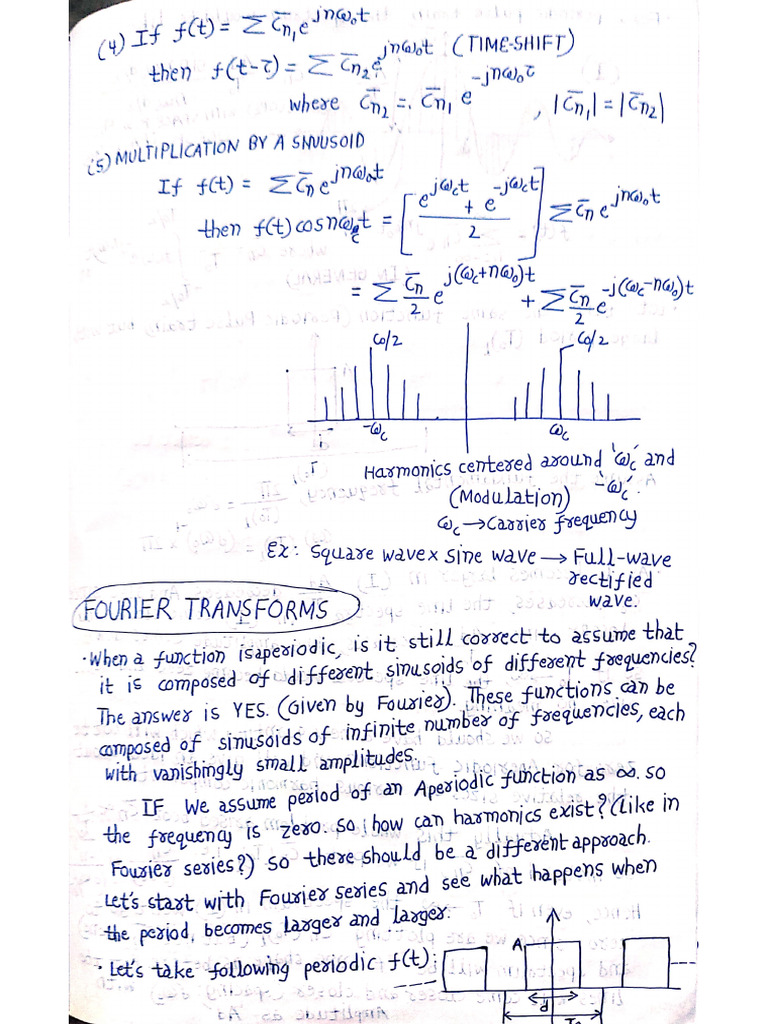 (4) If f(t) = Σ c̄n₁ e^jnω₀t
then f(t-τ) = Σ c̄n₂ e^jnω₀t (TIME-SHIFT)
where c̄n₂ = c̄n₁ e^-jnω₀τ , |c̄n₁| = |c̄n₂|
(5) MULTIPLICATION BY A SINUSOID
If f(t) = Σ c̄n e^jnω₀t
then f(t) cos nωct = [ (e^jωct + e^-jωct) / 2 ] Σ c̄n e^jnω₀t
= Σ c̄n/2 e^j(ωc+nω₀)t + Σ c̄n/2 e^-j(ωc-nω₀)t
C₀/2 C₀/2
-ωc ωc
Harmonics centered around 'ωc' and
(Modulation) '-ωc'.
ωc → Carrier frequency
Ex: Square wave x sine wave → Full-wave
rectified
wave.
FOURIER TRANSFORMS
· When a function is aperiodic, is it still correct to assume that
it is composed of different sinusoids of different frequencies?
The answer is YES. (Given by Fourier). These functions can be
composed of sinusoids of infinite number of frequencies, each
with vanishingly small amplitudes.
IF We assume period of an Aperiodic function as ∞. so
the frequency is zero. so how can harmonics exist? (Like in
Fourier series?) so there should be a different approach.
Let's start with Fourier series and see what happens when
the period, becomes larger and larger.
· Let's take following periodic f(t):
A
d
T₀